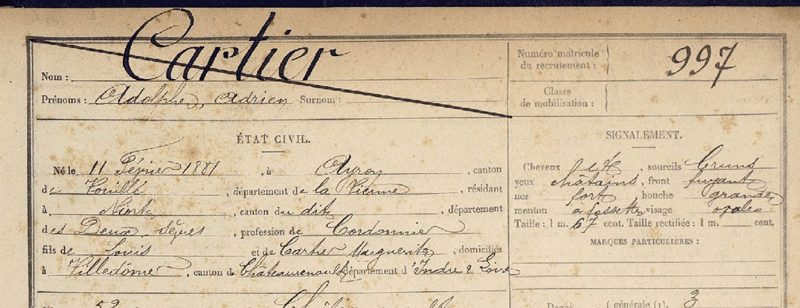 Nom : Cartier
Prénoms : Adolphe, Adrien Surnom :
Numéro matricule
du recrutement :
997
Classe
de mobilisation :
ÉTAT CIVIL.
Né le 11 Février 1881, à Ayron, canton
de Vouillé, département de la Vienne, résidant
à Niort, canton du dit, département
des Deux-Sèvres, profession de Cordonnier,
fils de Louis et de Cartier Marguerite, domiciliés
à Villedômer, canton de Châteaurenault, département d'Indre & Loire
SIGNALEMENT.
Cheveux et sourcils bruns
yeux châtains, front fuyant
nez fort, bouche grande
menton à fossette, visage ovale
Taille : 1 m. 67 cent. Taille rectifiée : 1 m. cent.
MARQUES PARTICULIÈRES :
(générale) : 3